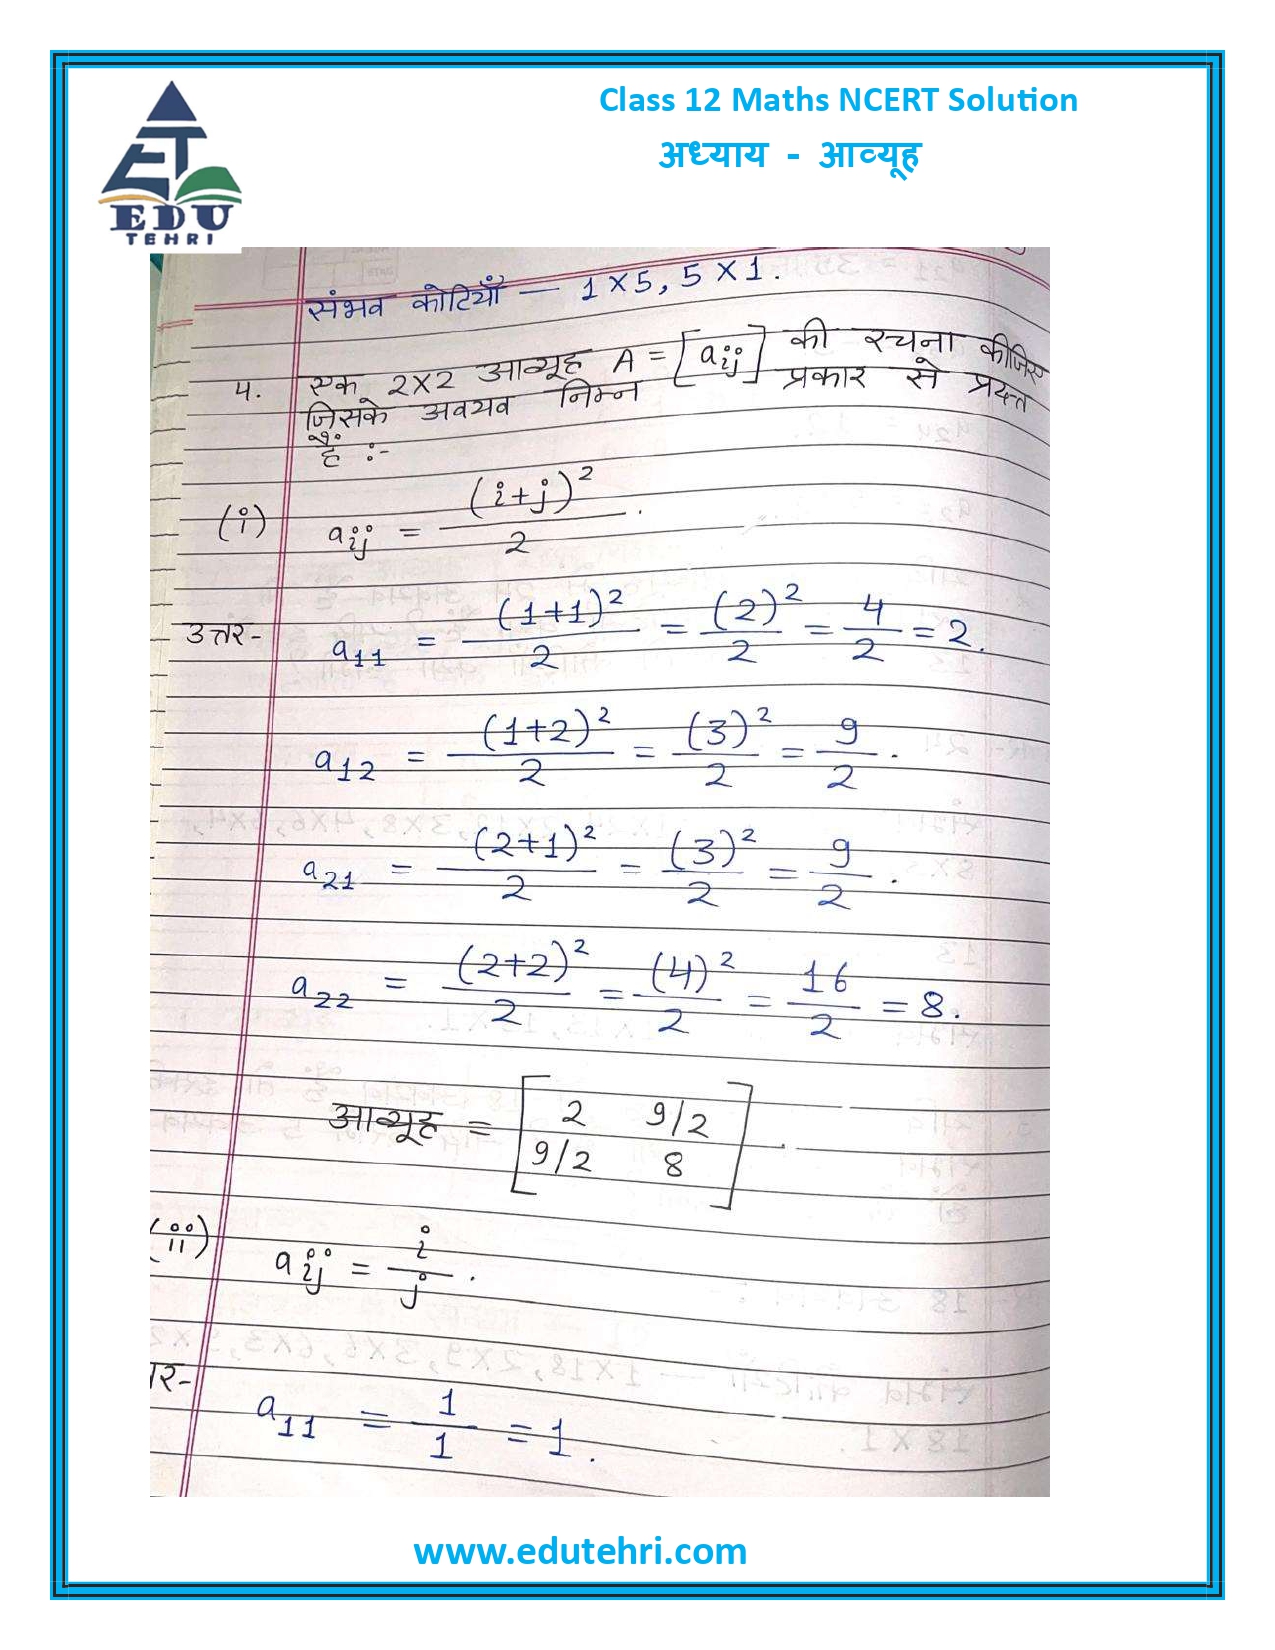 Class 12 Maths NCERT Solution
अध्याय - आव्यूह
EDU
TEHRI
संभव कोटियाँ — 1×5, 5×1.
4. एक 2×2 आव्यूह A = [aij] की रचना कीजिए
जिसके अवयव निम्न प्रकार से प्रदत्त
हैं :-
(i) aij = (i+j)²/2.
उत्तर- a11 = (1+1)²/2 = (2)²/2 = 4/2 = 2.
a12 = (1+2)²/2 = (3)²/2 = 9/2.
a21 = (2+1)²/2 = (3)²/2 = 9/2.
a22 = (2+2)²/2 = (4)²/2 = 16/2 = 8.
आव्यूह = [2 9/2
9/2 8].
(ii) aij = i/j.
तर- a11 = 1/1 = 1.
www.edutehri.com